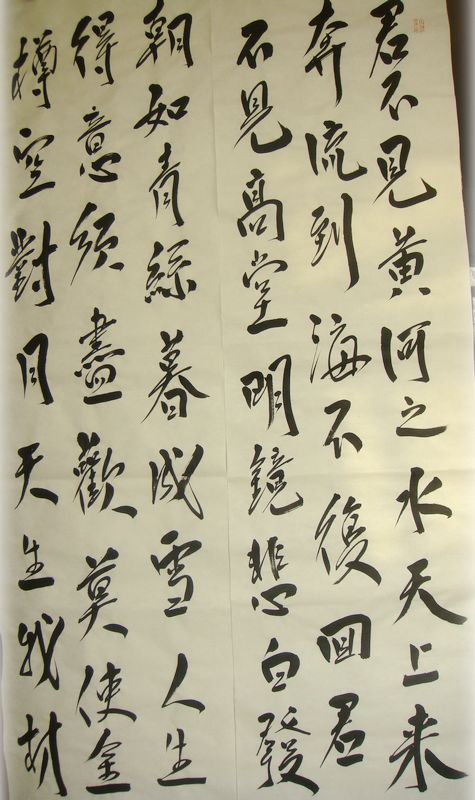 君不見黄河之水天上来
奔流到海不復回君
不見高堂明鏡悲白發
朝如青絲暮成雪人生
得意須盡歡莫使金
樽空對月天生我材